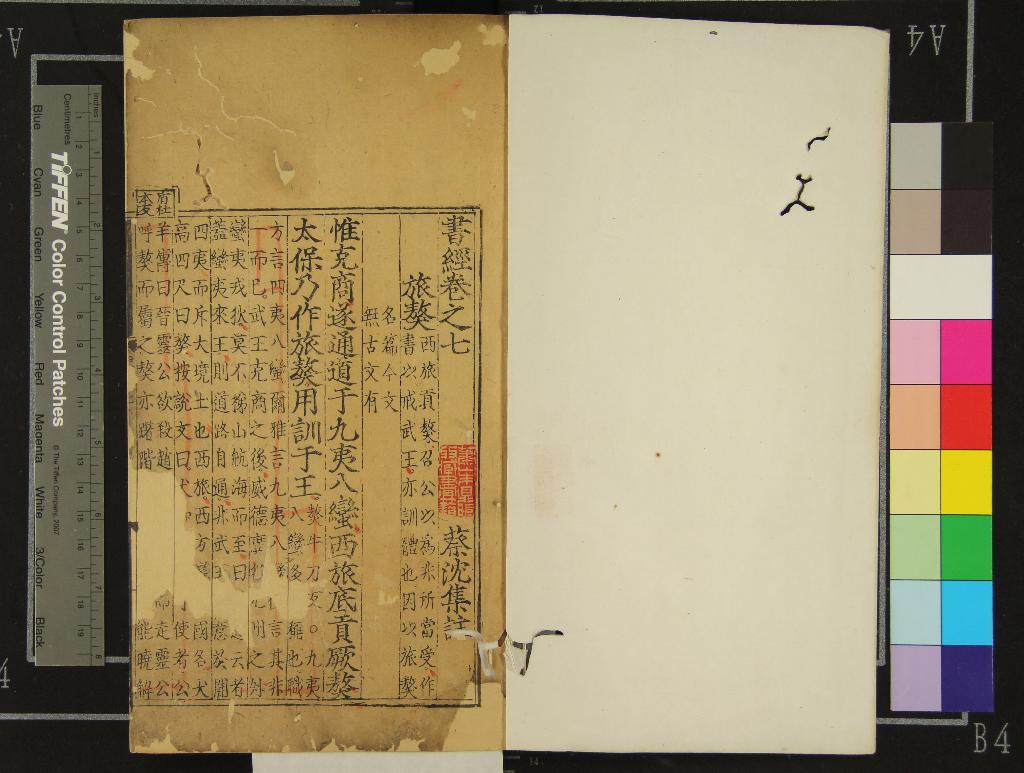 書經卷之七
蔡沈集註
旅獒
西旅貢獒召公以為非所當受作
書以戒武王亦訓體也因以旅獒
名篇今文
無古文有
惟克商遂通道于九夷八蠻西旅底貢厥獒
太保乃作旅獒用訓于王
獒牛刀反○九夷
八蠻多稱也職
方言四夷八蠻爾雅言九夷八 言其非
一而已武王克商之後威德廣 所之外
蠻夷戎狄莫不梯山航海而至曰 云者
蓋蠻夷來王則道路自通非武王 啟闢
四夷而斥大境土也西旅西方 國名犬
高四尺曰獒按說文曰犬 使者公
羊傳曰晉靈公欲殺趙 而走靈公
呼獒而屬之獒亦躇階 能曉解
Inches
Centimetres
TIFFEN Color Control Patches
© The Tiffen Company, 2007
Blue Cyan Green Yellow Red Magenta White 3/Color Black
A4
B4